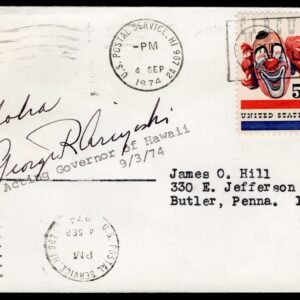 U.S. POSTAL SERVICE, HI 967
PM
4 SEP
1974
5
UNITED STATES
Aloha
George R Ariyoshi
Acting Governor of Hawaii
9/3/74
James O. Hill
330 E. Jefferson
Butler, Penna.
U.S. POSTAL SERVICE, HI 967
PM
4 SEP